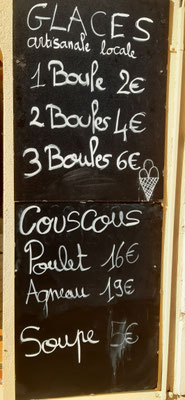 GLACES
artisanale locale
1 Boule 2€
2 Boules 4€
3 Boules 6€
Couscous
Poulet 16€
Agneau 19€
Soupe 5€